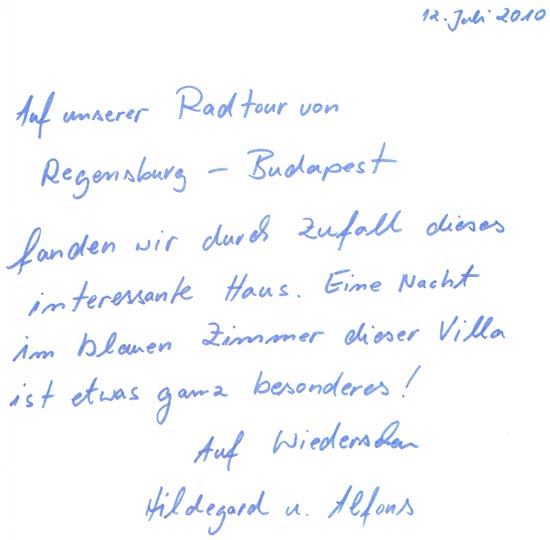 12. Juli 2010
Auf unserer Radtour von
Regensburg – Budapest
fanden wir durch Zufall dieses
interessante Haus. Eine Nacht
im blauen Zimmer dieser Villa
ist etwas ganz besonderes!
Auf Wiedersehen
Hildegard u. Alfons